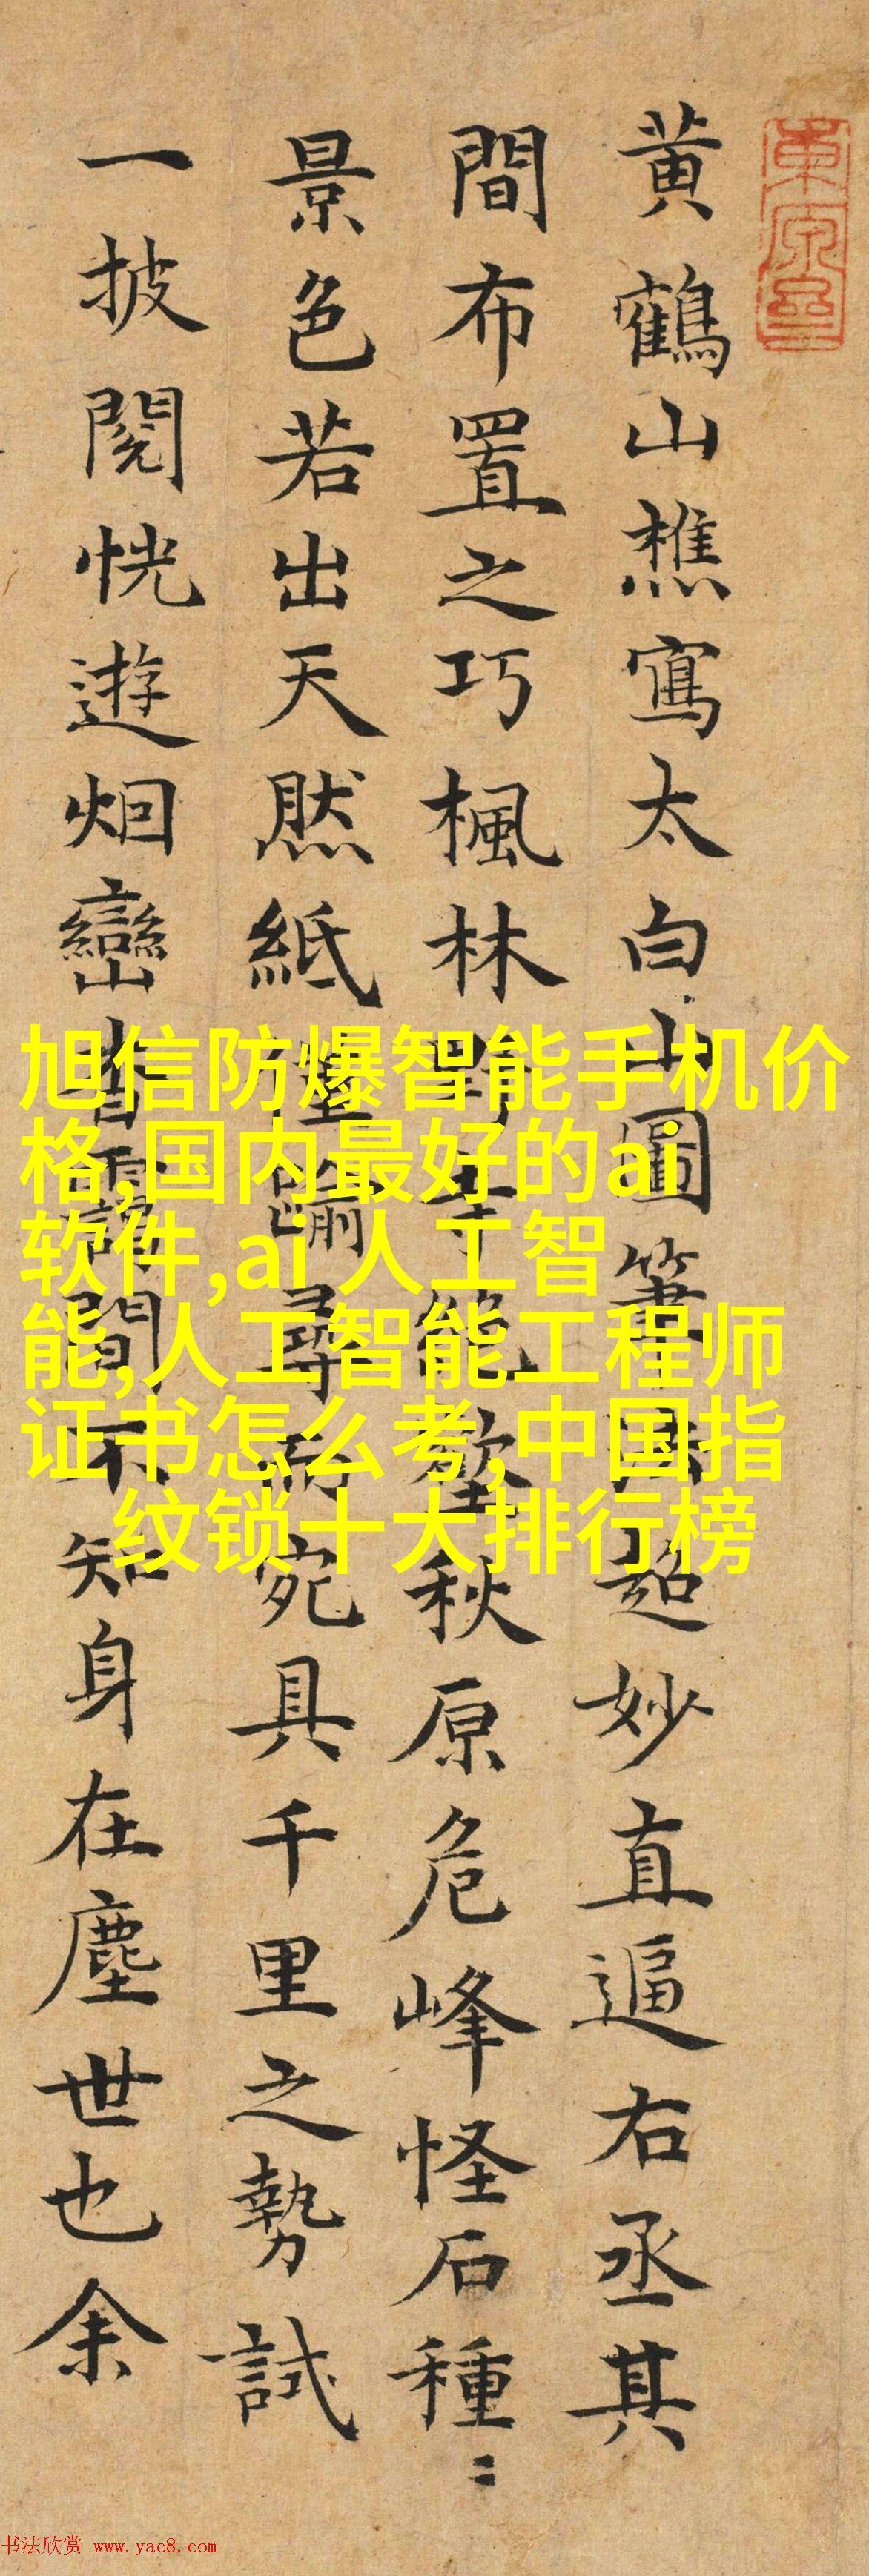 黄鶴山樵寫太白山圖筆法超妙直逼右丞其
間布置之巧楓林野寺絶壑秋原危峰怪石種〻
景色若出天然紙僅踰尋而宛具千里之勢試
一披閱恍遊烟巒杳靄間不知身在塵世也余
旭信防爆智能手机价
格,国内最好的ai
软件,ai 人工智
能,人工智能工程师
证书怎么考,中国指
纹锁十大排行榜
书法欣赏 www.yac8.com